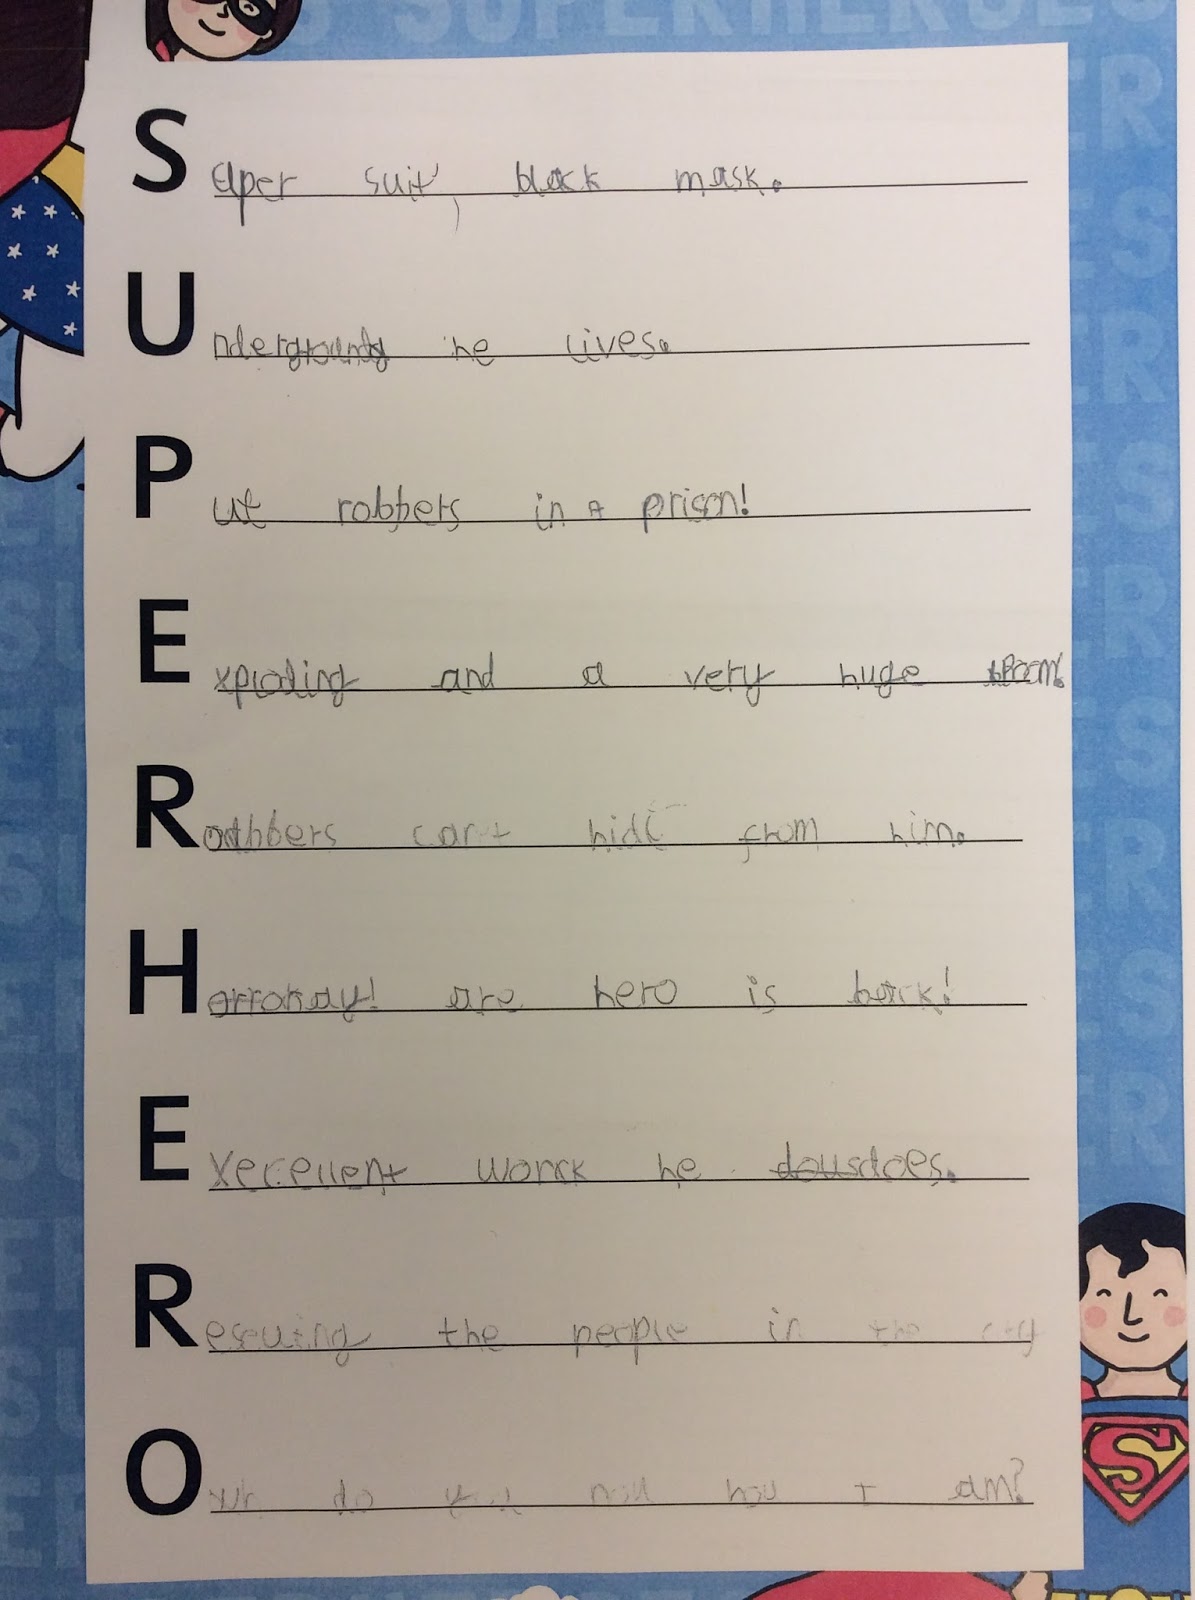 SUPERHEROES
Super suit, black mask.
Underground he lives.
Put robbers in a prison!
Exploding and a very huge Boom!
Robbers can't hide from him.
Horroray! are hero is back!
Excellent worck he does.
Rescuing the people in the city
do you now how I am?